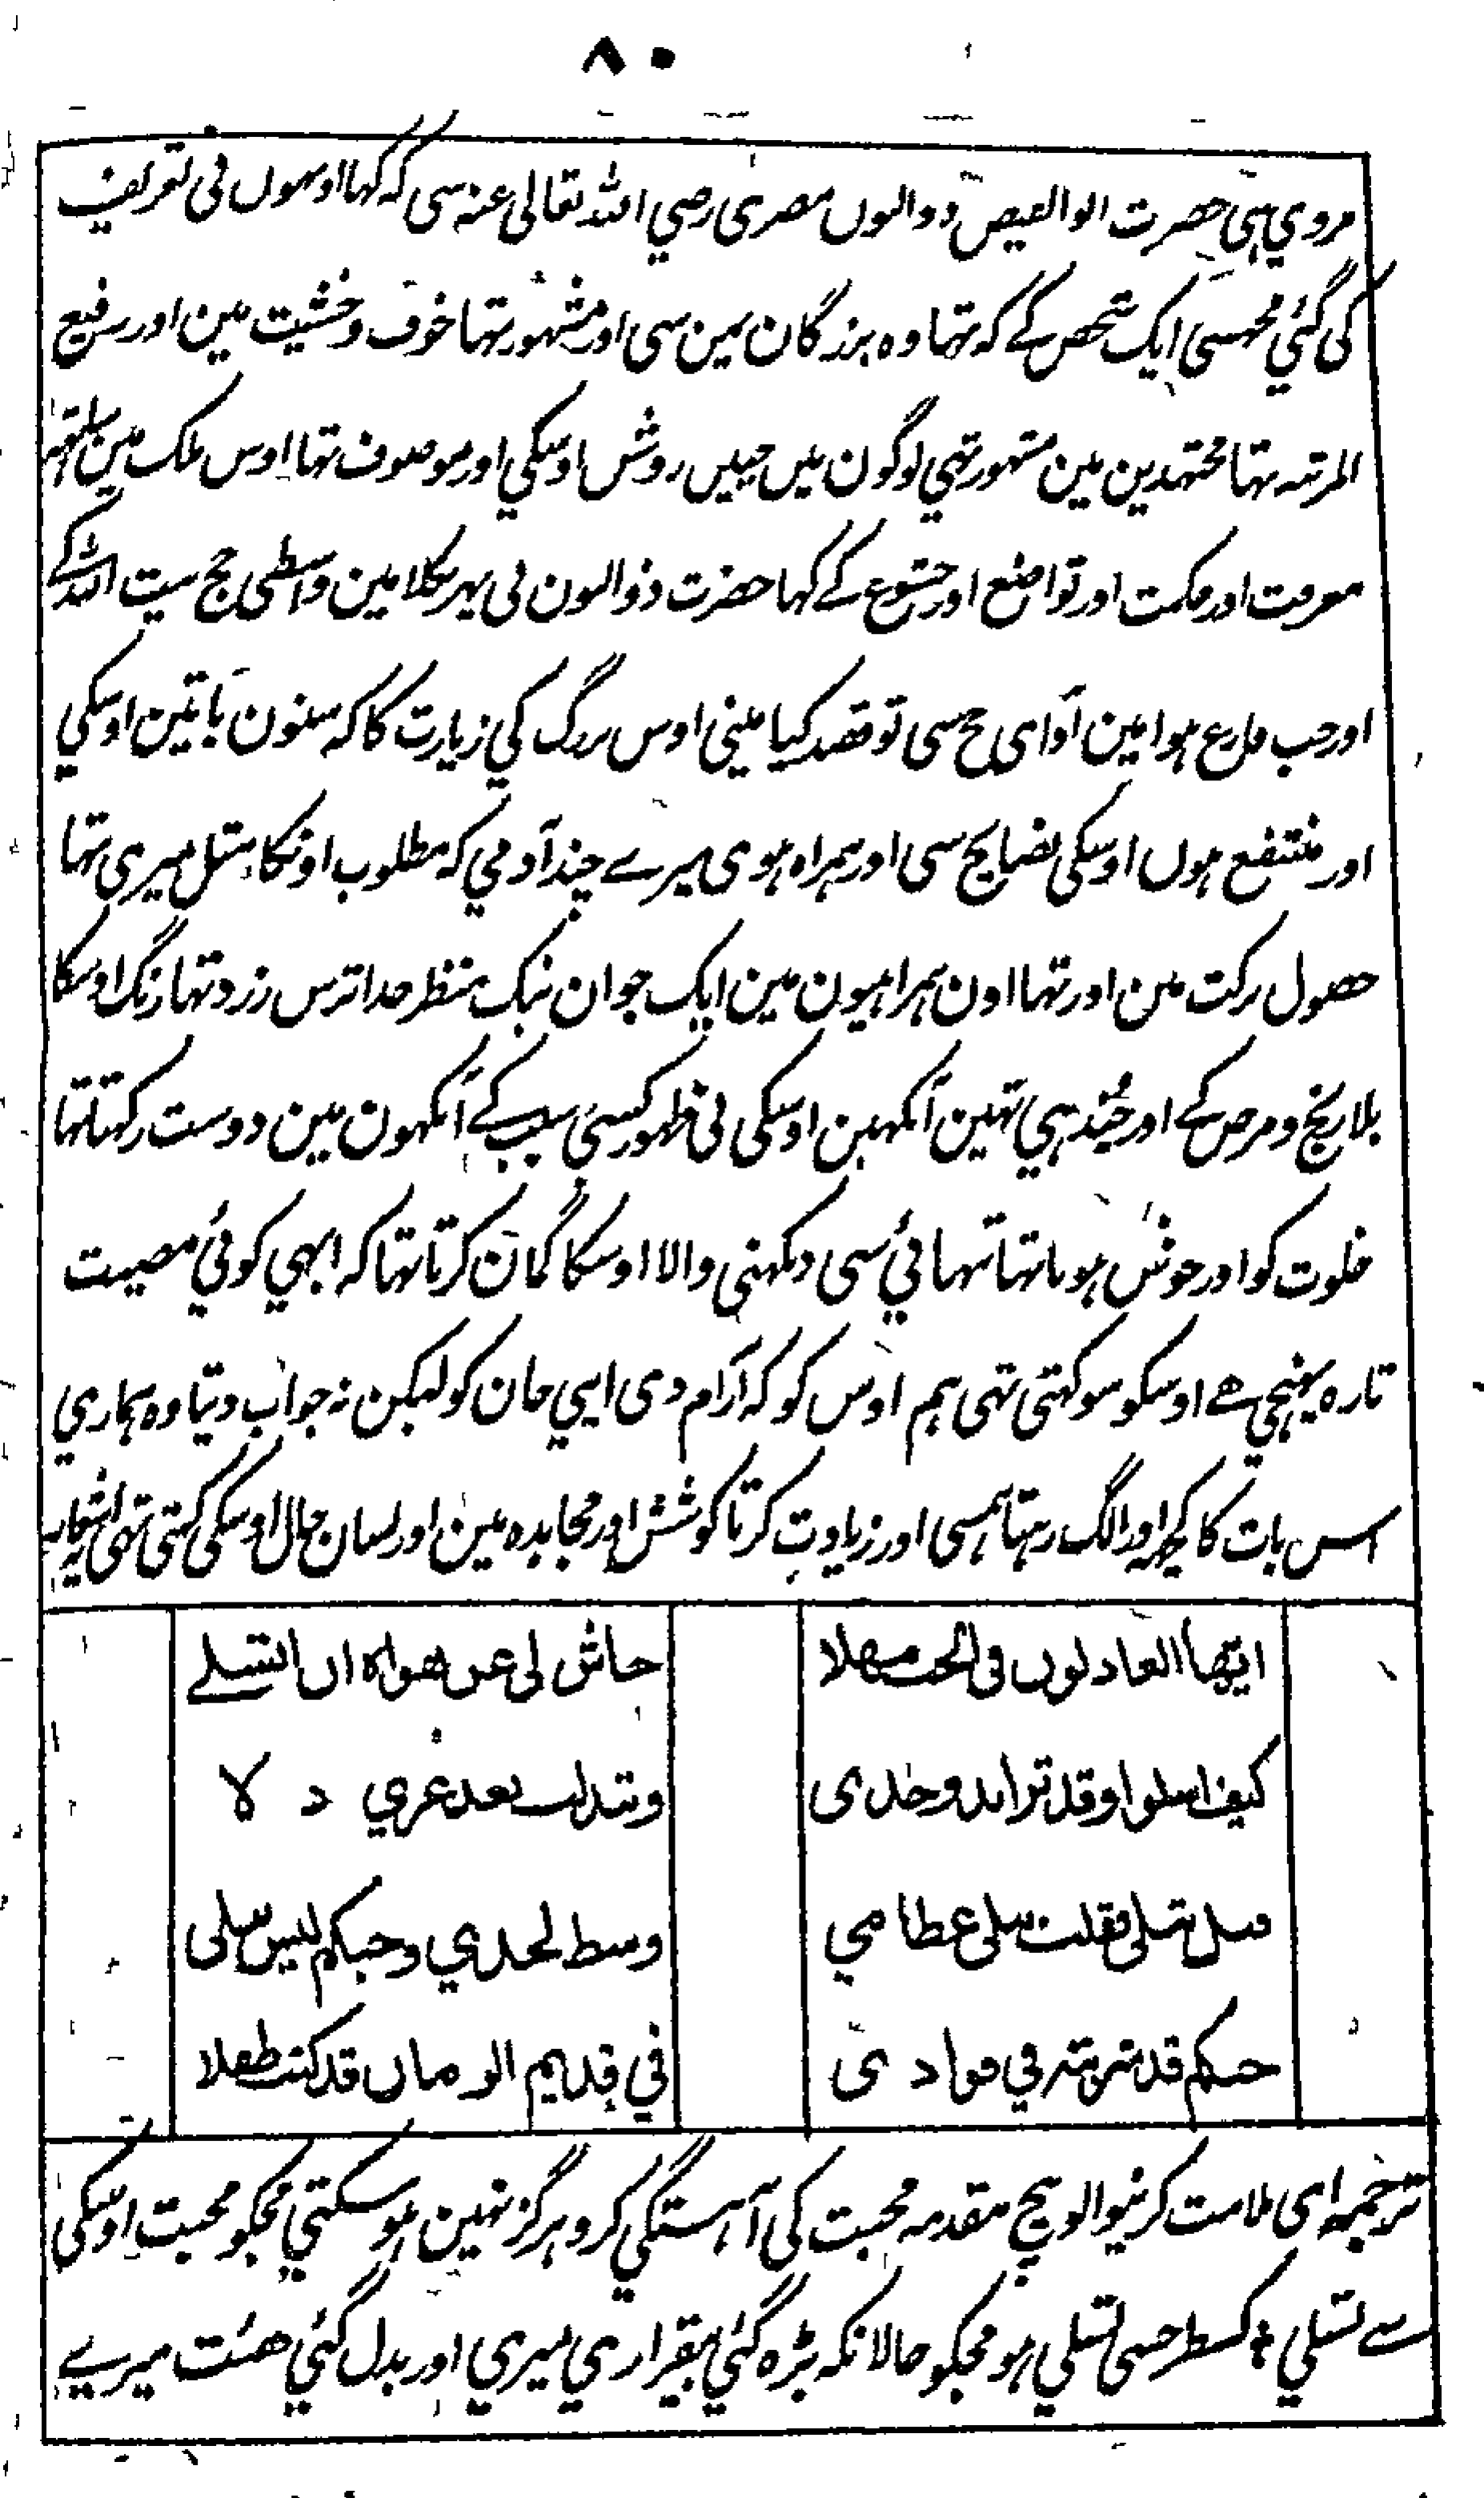 ۸۰
مروي ہی حضرت ابو الفیض ذوالنون مصری رضي اللہ تعالی عنہ سی کہ کہا اونہوں نی تعریف
کی گئي مجہسی ایک شخص کے کہ تہا وہ بزرگان یمن سی اور مشہور تہا خوف و خشیت مین اور رفیع
المرتبہ تہا مجتہدین مین مشہور تہي لوگون میں جبیں روش اوسکي اور موصوف تہا اوس ملک مین ساتھ
معرفت اور حکمت اور تواضع اور خشوع کے کہا حضرت ذوالنون نی پہر نکلا مین واسطی حج بیت اللہ کے
اور جب فارغ ہوا مین آدای حج سی تو قصد کیا مینی اوس بزرگ کي زیارت کا کہ سنون باتین اوسکي
اور منتفع ہوں اوسکی نصایح سی اور ہمراہ ہوی میرے چند آدمي کہ مطلوب اونکا مثل میری تہا
حصول برکت مین اور تہا اون ہمراہیون مین ایک جوان نیک منظر خدا ترس زرد تہا رنگ اوسکا
بلا رنج و مرض کے اور چندہي تہین آنکہین اوسکی بی ظہور کسی سبب کے آنکہون مین دوست رکہتا تہا
خلوت کو اور خوش ہوتا تہا تنہائي سی دیکہنی والا اوسکا گمان کرتا تہا کہ ابہي کوئي مصیبت
تازہ پہنچي ہے اوسکو سو کہتی تہی ہم اوس کو کہ آرام دی اپني جان کو لیکن نہ جواب دیتا وہ ہماري
اس بات کا کچہ اور الگ رہتا ہمسی اور زیادت کرتا کوشش اور مجاہدہ مین اور لسان حال اوسکی کہتی تہی یہ اشعار
ایها العاذلون فی الحب مهلا حاش لی عن هواه ان اتسلے
کیف اسلوا وقد تزاید وجدی وتبدلت بعد عزي ذ لا
قیل تبلی فقلت تبلی عظامي وسط لحدي وحبکم لیس یبلی
حبکم قد شربته في فوادی في قدیم الزمان قد کنت طفلا
ترجمہ ای ملامت کرنیوالو بیچ مقدمہ محبت کی آہستگي کرو ہرگز نہین ہو سکتي مجکو محبت اوسکی
سے تسلي ؛ کسطرحسی تسلي ہو مجکو حالانکہ بڑہ گئي بیقراري میري اور بدل گئي ھئت میرے